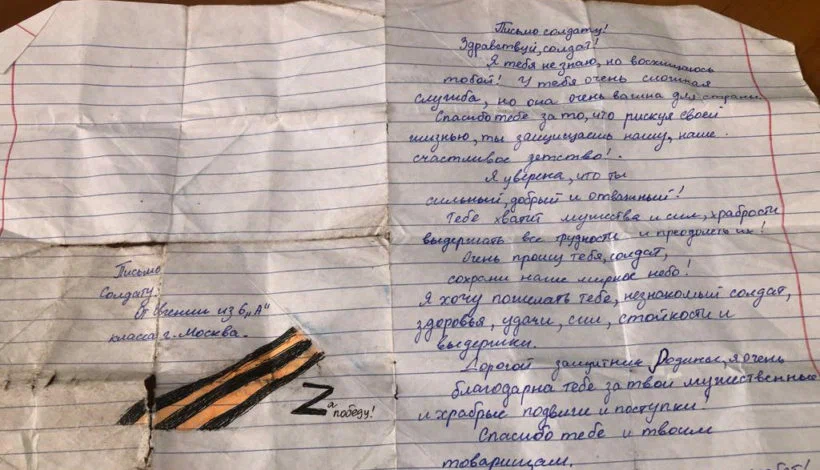 Письмо
Солдату.
От Евгении из 6 „А"
класса г. Москва.
Zа победу!
Письмо солдату!
Здравствуй, солдат!
Я тебя не знаю, но восхищаюсь
тобой! У тебя очень сложная
служба, но она очень важна для страны.
Спасибо тебе за то, что рискуя своей
жизнью, ты защищаешь нашу, наше
счастливое детство!.
Я уверена, что ты
сильный, добрый и отважный!
Тебе хватит мужества и сил, храбрости
выдержать все трудности и преодолеть их!
Очень прошу тебя, солдат,
сохрани наше мирное небо!
Я хочу пожелать тебе, незнакомый солдат,
здоровья, удачи, сил, стойкости и
выдержки.
Дорогой защитник Родины, я очень
благодарна тебе за твои мужественные
и храбрые подвиги и поступки!
Спасибо тебе и твоим
товарищам.